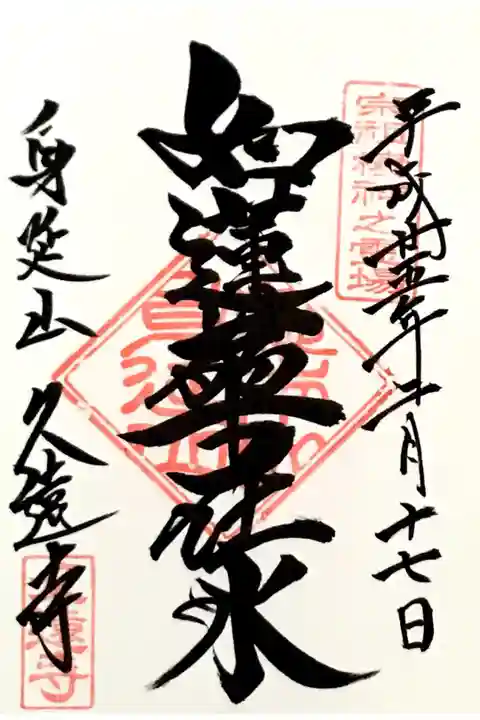 宗祖棲神之霊場
平成廿五年十一月十七日
如蓮華在水
身延山 久遠寺
久遠寺